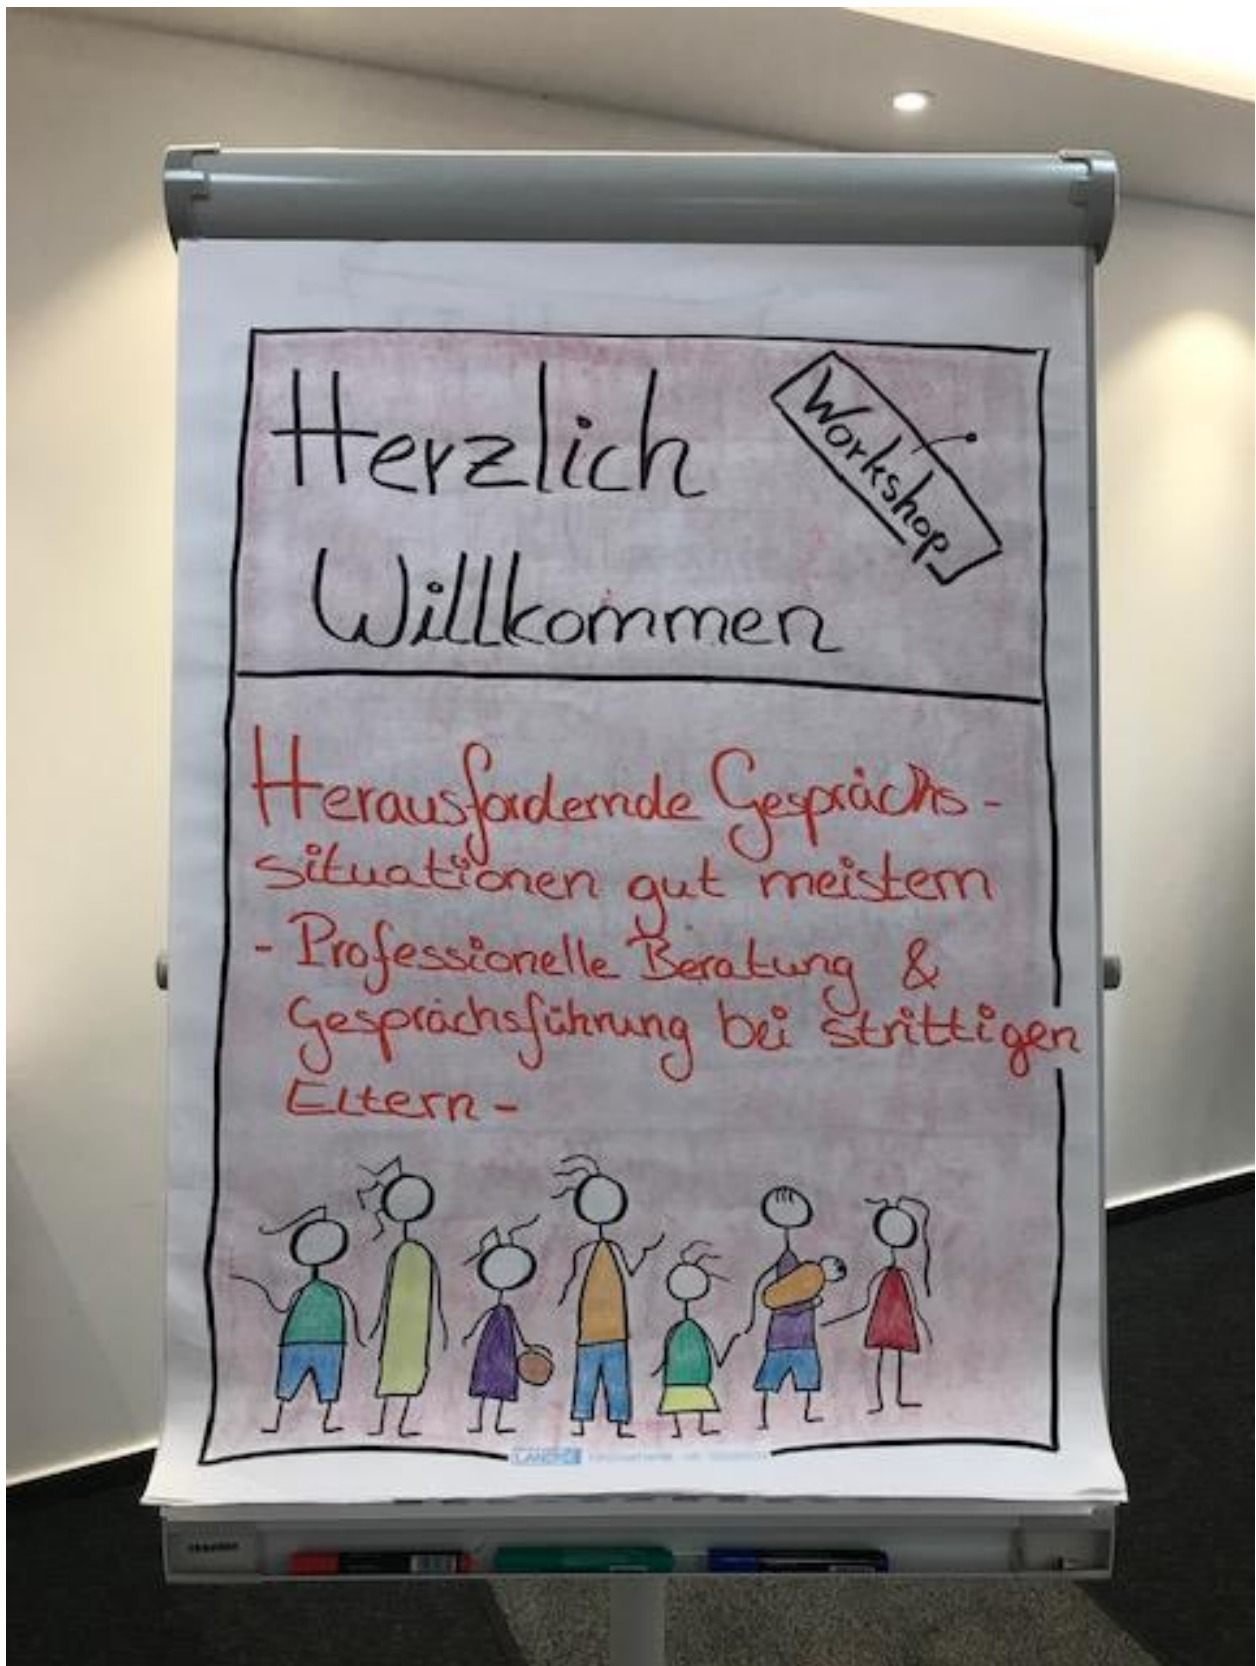 Herzlich
Willkommen
Workshop
Herausfordernde Gesprächs-
situationen gut meistern
- Professionelle Beratung &
Gesprächsführung bei strittigen
Eltern -